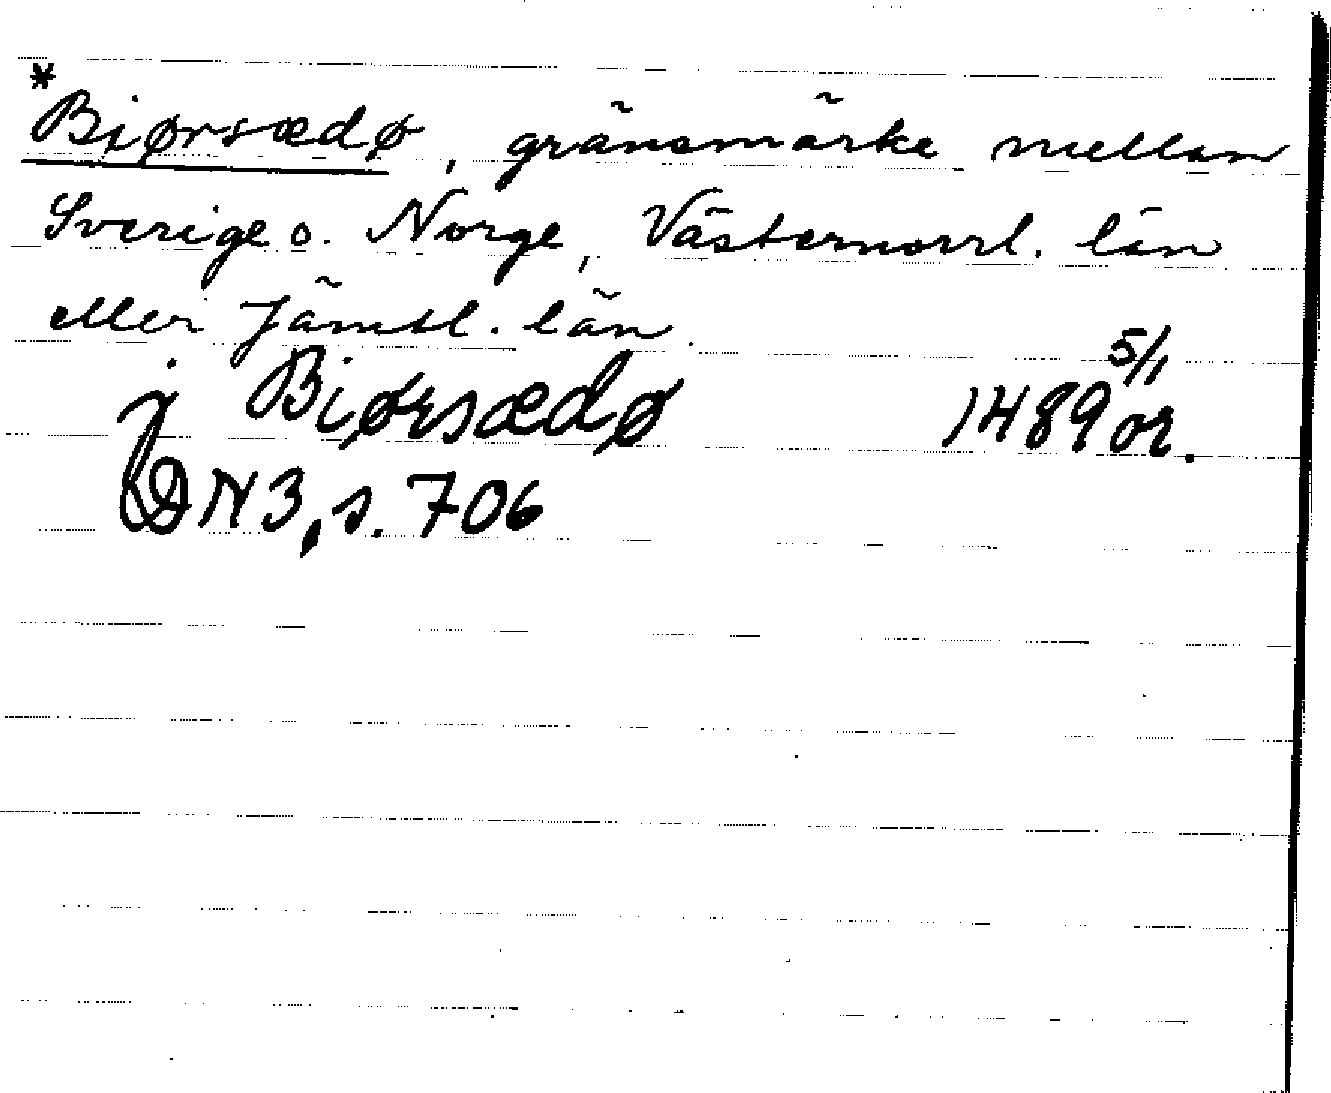 *
Biørsædø, gränsmärke mellan
Sverige o. Norge, Västernorrl. län
eller Jämtl. län.
j Biørsædø 1489 5/1 or.
DN 3, s. 706